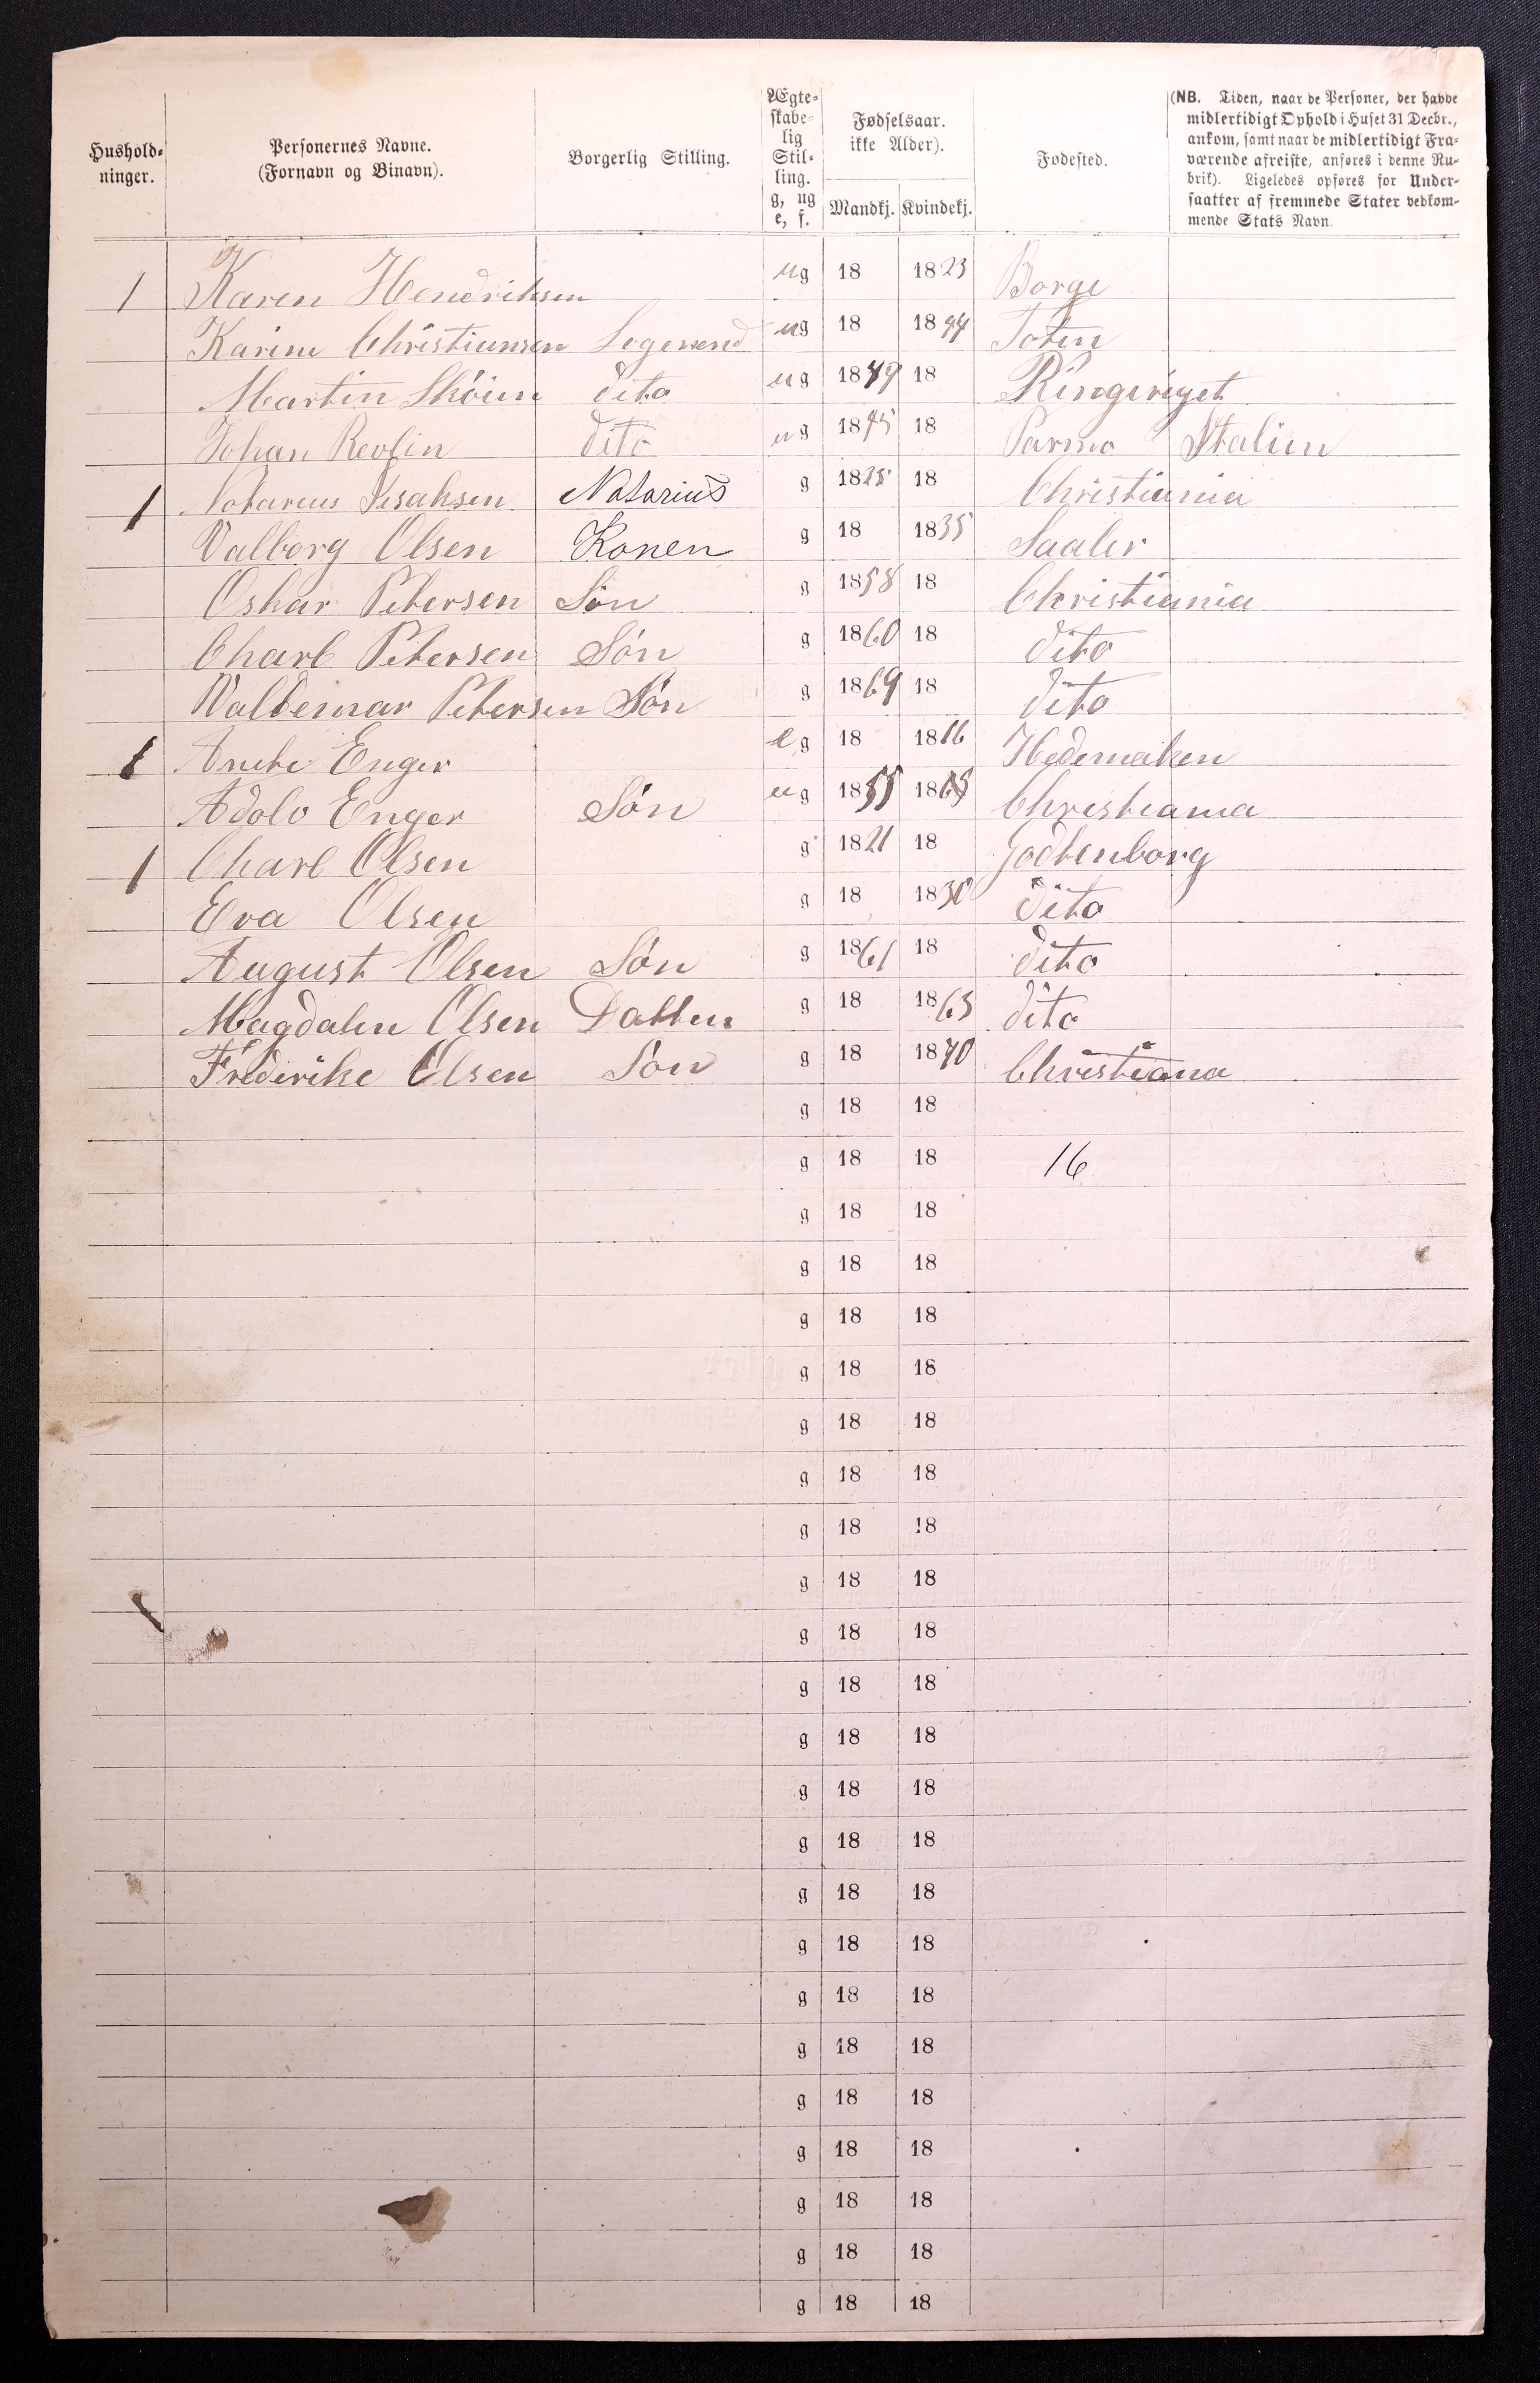 Hushold-
ninger.
Personernes Navne.
(Fornavn og Binavn).
Borgerlig Stilling.
Ægte-
skabe-
lig
Stil-
ling.
g, ug
e, f.
Fødselsaar.
ikke Alder).
Mandkj. Kvindekj.
Fødested.
(NB. Tiden, naar de Personer, der havde
midlertidigt Ophold i Huset 31 Decbr.,
ankom, samt naar de midlertidigt Fra-
værende afreiste, anføres i denne Ru-
brik). Ligeledes opføres for Under-
saatter af fremmede Stater vedkom-
mende Stats Navn.
1 Karen Hendriksen ug 18 1823 Borge
Karine Christiansen Logerend ug 18 18 Toten
Martin Skóien dito ug 1849 18 Ringeriget
Johan dito ug 1845 18 Parma Italien
1 Notarius Isaksen Notarius g 1825 18 Christiania
Valborg Olsen Konen g 18 1835 Saaler
Oskar Petersen Sön g 1858 18 Christiania
Charl Petersen Són g 1860 18 dito
Valdemar Petersen Són g 1869 18 dito
1 Anethe Enger eg 18 1816 Hedemaken
Adolv Enger Són ug 1855 18 Christiania
1 Charl Olsen g 1821 18 Godtenborg
Eva Olsen g 18 1830 dito
August Olsen Són g 1861 18 dito
Magdalen Olsen Datter g 18 1865 dito
Frederike Olsen Són g 18 1870 Christiana
g 18 18
g 18 18 16
g 18 18
g 18 18
g 18 18
g 18 18
g 18 18
g 18 18
g 18 18
g 18 18
g 18 18
g 18 18
g 18 18
g 18 18
g 18 18
g 18 18
g 18 18
g 18 18
g 18 18
g 18 18
g 18 18
g 18 18
g 18 18
g 18 18